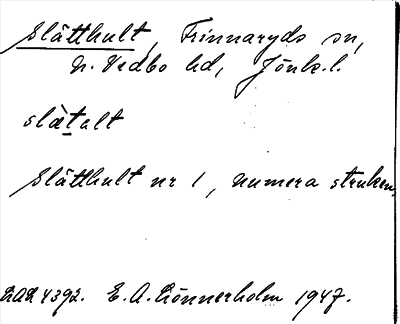 Slätthult, Frinnaryds sn,
N. Vedbo hd, Jönk. l.
slætalt
Slätthult nr 1, numera struken.
RAÄ 4392. E. A. Rönnerholm 1947.